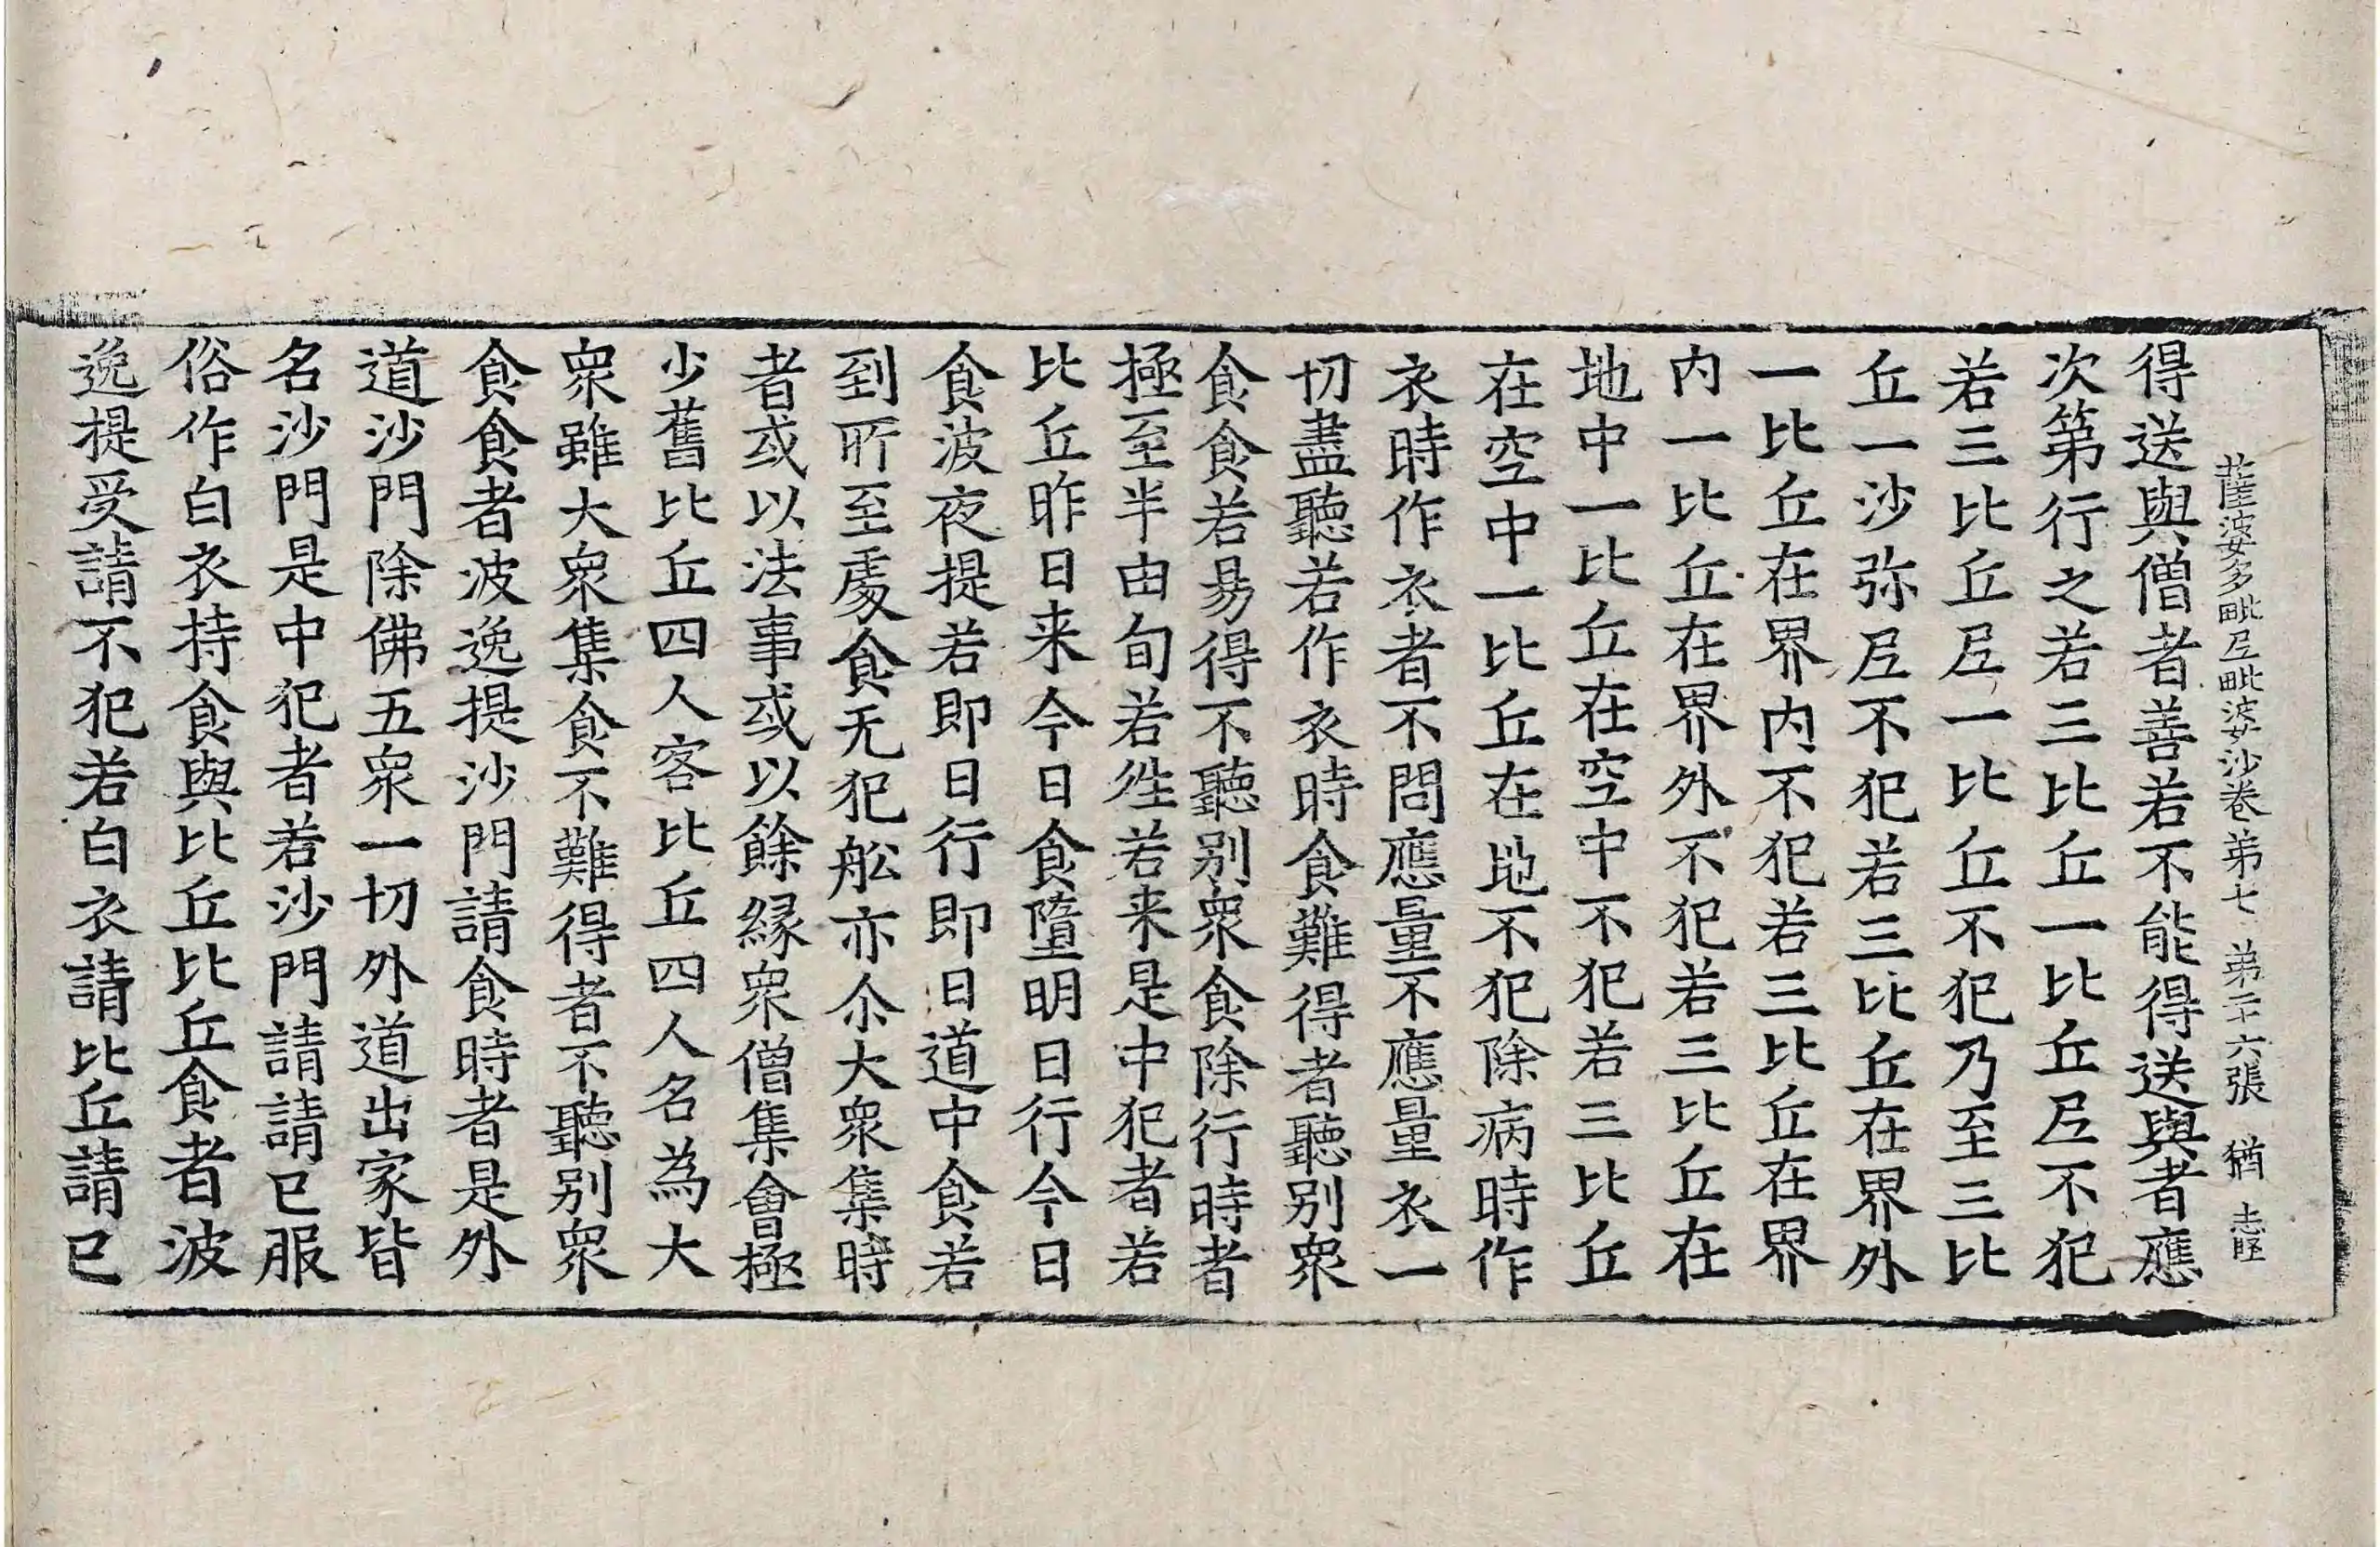 薩婆多毗尼毗婆沙卷第七 第二十六張 猶
得送與僧者善若不能得送與者應
次第行之若三比丘一比丘尼不犯
若三比丘尼一比丘不犯乃至三比
丘一沙弥尼不犯若三比丘在界外
一比丘在界内不犯若三比丘在界
内一比丘在界外不犯若三比丘在
地中一比丘在空中不犯若三比丘
在空中一比丘在地不犯除病時作
衣時作衣者不問應量不應量衣一
切盡聽若作衣時食難得者聽别衆
食食若易得不聽别衆食除行時者
極至半由旬若徃若来是中犯者若
比丘昨日来今日食墮明日行今日
食波夜提若即日行即日道中食若
到所至處食无犯舩亦尒大衆集時
者或以法事或以餘縁衆僧集會極
少舊比丘四人客比丘四人名為大
衆雖大衆集食不難得者不聽别衆
食食者波逸提沙門請食時者是外
道沙門除佛五衆一切外道出家皆
名沙門是中犯者若沙門請請已服
俗作白衣持食與比丘比丘食者波
逸提受請不犯若白衣請比丘請已